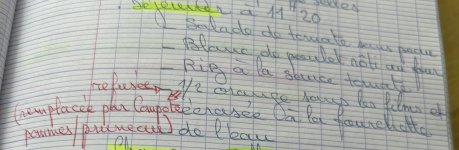 Déjeuner à 11h20
- Salade de tomate sans peau
- Blanc de poulet rôti au four
- Riz à la sauce tomate
refusée → 1/2 orange sans les films et
(remplacée par Compote écrasée à la fourchette
pommes/pruneau) de l'eau